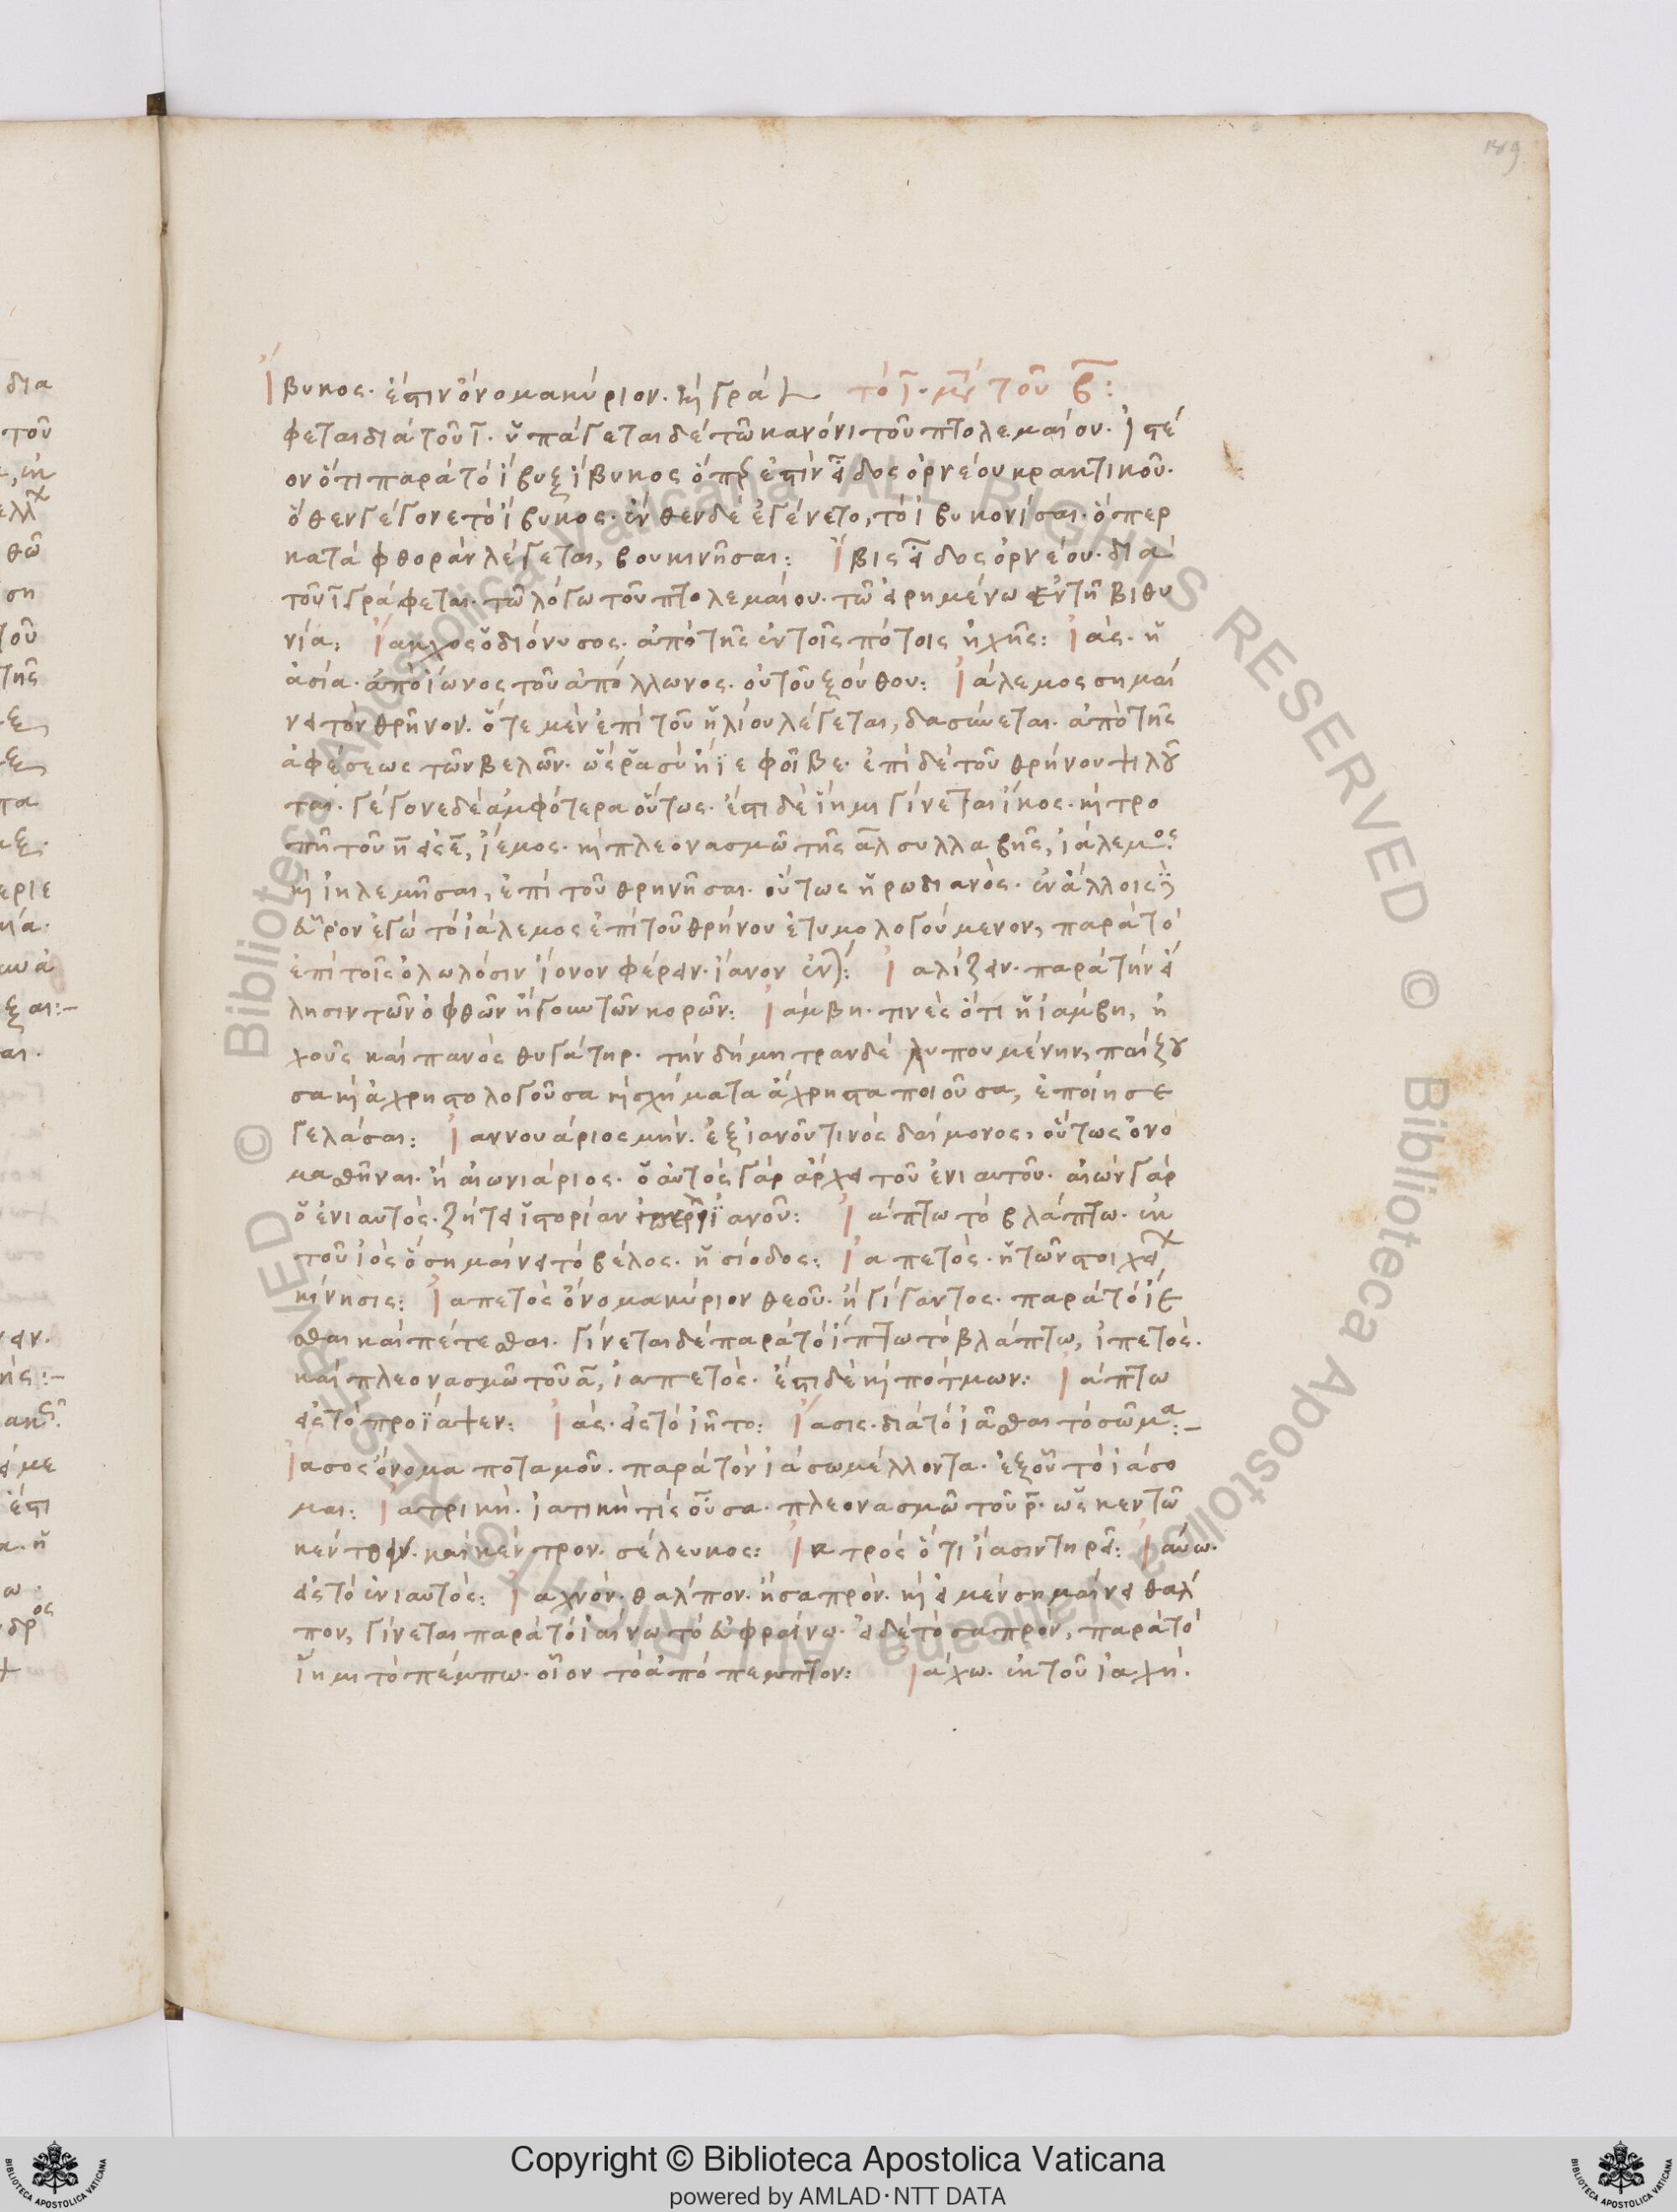 189
Ἴβυκος· ἐστιν ὄνομα κύριον· καὶ γρά τὸ ῑ· μετὰ τοῦ β̄:
φεται διὰ τοῦ ῑ· ὑπάγεται δὲ τῶ κανόνι τοῦ πτολεμαίου· Ἰστέ
ον ὅτι παρὰ τὸ ἴβυξ ἴβυκος ὅπερ ἐστὶν εἶδος ὀρνέου κρακτικοῦ·
ὅθεν γέγονε τὸ ἴβυκος· ἔνθεν δὲ ἐγένετο, τὸ ἰβυκονίσαι· ὅπερ
κατὰ φθορὰν λέγεται, βουκινῆσαι: Ἴβις εἶδος ὀρνέου· διὰ
τοῦ ῑ γράφεται· τῶ λόγω τοῦ πτολεμαίου· τῶ εἰρημένω ἐν τῆ βιθυ
νία: Ἴακχος ὁ διόνυσος· ἀπὸ τῆς ἐν τοῖς πότοις ἠχῆς: Ἰάς· ἡ
ἀσία· ἀπὸ ἴωνος τοῦ ἀπόλλωνος· οὐ τοῦ ξούθου: Ἰάλεμος σημαί
νει τὸν θρῆνον· ὅτε μὲν ἐπὶ τοῦ ἡλίου λέγεται, δασύνεται· ἀπὸ τῆς
ἀφέσεως τῶν βελῶν· ἤϊε φοῖβε· ἐπὶ δὲ τοῦ θρήνου ψιλοῦ
ται· γέγονε δὲ ἀμφότερα οὕτως· ἔστι δὲ ἵημι γίνεται· καὶ τρο
πῆ τοῦ η̄ εἰς ε̄, ἴεμος· καὶ πλεονασμῶ τῆς ᾱλ συλλαβῆς, ἰάλεμος
καὶ ἰηλεμῆσαι, ἐπὶ τοῦ θρηνῆσαι· οὕτως ἡρωδιανός· ἐν ἄλλοις
εὗρον ἐγὼ τὸ ἰάλεμος ἐπὶ τοῦ θρήνου ἐτυμολογούμενον, παρὰ τὸ
ἐπὶ τοῖς ὀλωλόσιν ἴονον φέρειν· ἰάνον: Ἰαλίζειν· παρὰ τὴν εἴ
λησιν τῶν ὀφθῶν ἤγουν τῶν κορῶν: Ἰάμβη· τινὲς ὅτι ἡ ἰάμβη, ἠ
χοῦς καὶ πανὸς θυγάτηρ· τὴν δήμητραν δὲ λυπουμένην, παίζου
σα καὶ ἀχρηστολογοῦσα καὶ σχήματα ἄχρηστα ποιοῦσα, ἐποίησε
γελάσαι: Ἰαννουάριος μήν· ἐξ ἰανοῦ τινὸς δαίμονος, οὕτως ὀνο
μασθῆναι· ἢ αἰωνιάριος· ὁ αὐτὸς γὰρ ἄρχει τοῦ ἐνιαυτοῦ· αἰὼν γὰρ
ὁ ἐνιαυτός· ζήτει ἱστορίαν περὶ ἰανοῦ: Ἰάπτω τὸ βλάπτω· ἐκ
τοῦ ἰὸς ὃ σημαίνει τὸ βέλος· ἡσίοδος: Ἰαπετός· ἡ τῶν στοιχεί
κίνησις: Ἰαπετὸς ὄνομα κύριον θεοῦ· ἢ γίγαντος· παρὰ τὸ ἵε
σθαι καὶ πέτεσθαι· γίνεται δὲ παρὰ τὸ ἵπτω τὸ βλάπτω, ἰπετός·
καὶ πλεονασμῶ τοῦ ᾱ, ἰαπετός· ἔστι δὲ καὶ ποτμων: Ἰάπτω
εἰς τὸ προΐαψεν: Ἰάς· εἰς τὸ ἰῆτο: Ἴασις· διὰ τὸ ἰᾶσθαι τὸ σῶμα:–
Ἴασος ὄνομα ποταμοῦ· παρὰ τὸν ἰάσω μέλλοντα· ἐξ οὗ τὸ ἰάσο
μαι: Ἰατρικὴ· ἰατικὴ τίς οὖσα· πλεονασμῶ τοῦ ρ̄· ὡς κεντῶ
κέντον· καὶ κέντρον· σέλευκος: Ἰατρὸς ὅτι ἴασιν τηρεῖ: Ἰαύω·
εἰς τὸ ἐνιαυτός: Ἰαχνόν· θαλπον· ἢ σαπρόν· καὶ εἰ μὲν σημαίνει θαλ
πον, γίνεται παρὰ τὸ ἰαίνω τὸ εὐφραίνω· εἰ δὲ τὸ σαπρόν, παρὰ τὸ
ἵημι τὸ πέμπω· οἷον τὸ ἀπόπεμπτον: Ἰάχω· ἐκ τοῦ ἰαχή·
Copyright © Biblioteca Apostolica Vaticana
powered by AMLAD·NTT DATA